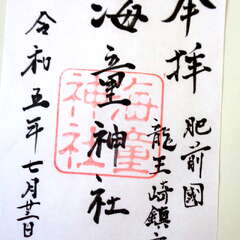 奉拝
肥前國
龍王崎鎮
海童神社
海童神社
令和五年七月廿三日